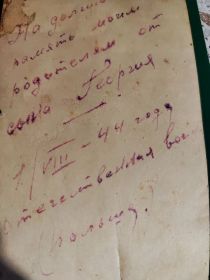 На долгую
память моим
родителям от
сына Георгия.
1/VIII – 44 году
Отечественная вой
Польша.